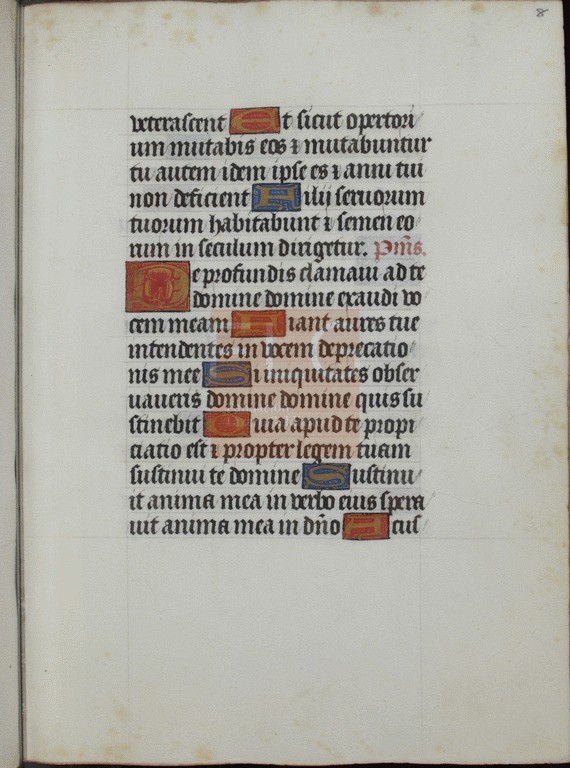 8
veterascent Et sicut opertori
um mutabis eos ⁊ mutabuntur
tu autem idem ipse es ⁊ anni tui
non deficient Filij seruorum
tuorum habitabunt ⁊ semen eo
rum in seculum dirigetur. Psm̄s.
De profundis clamaui ad te
domine domine exaudi vo
cem meam Fiant aures tue
intendentes in vocem deprecatio
nis mee Si iniquitates obser
uaueris domine domine quis su
stinebit Quia apud te propi
ciatio est ⁊ propter legem tuam
sustinui te domine Sustinu
it anima mea in verbo eius spera
uit anima mea in dn̄o A cus